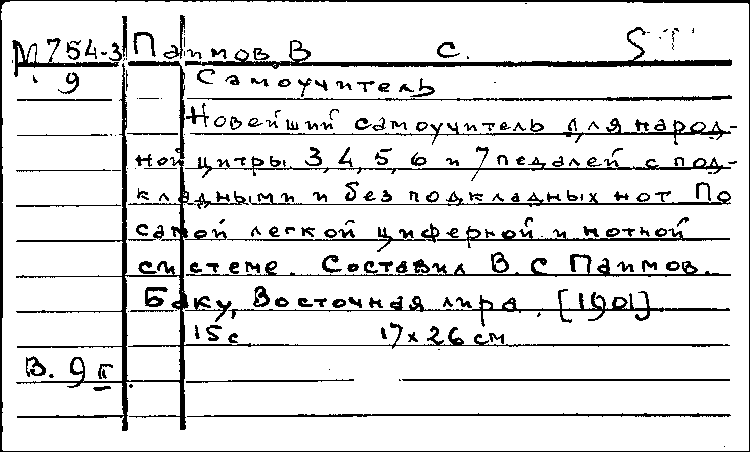 М 754-3 Паимов, В С.
9 Самоучитель
Новейший самоучитель для народ-
ной цитры 3, 4, 5, 6 и 7 педалей с под-
кладными и без подкладных нот По
самой легкой циферной и нотной
системе. Составил В. С Паимов.
Баку, Восточная лира. [1901]
15 с 17 x 26 см
В. 9 II